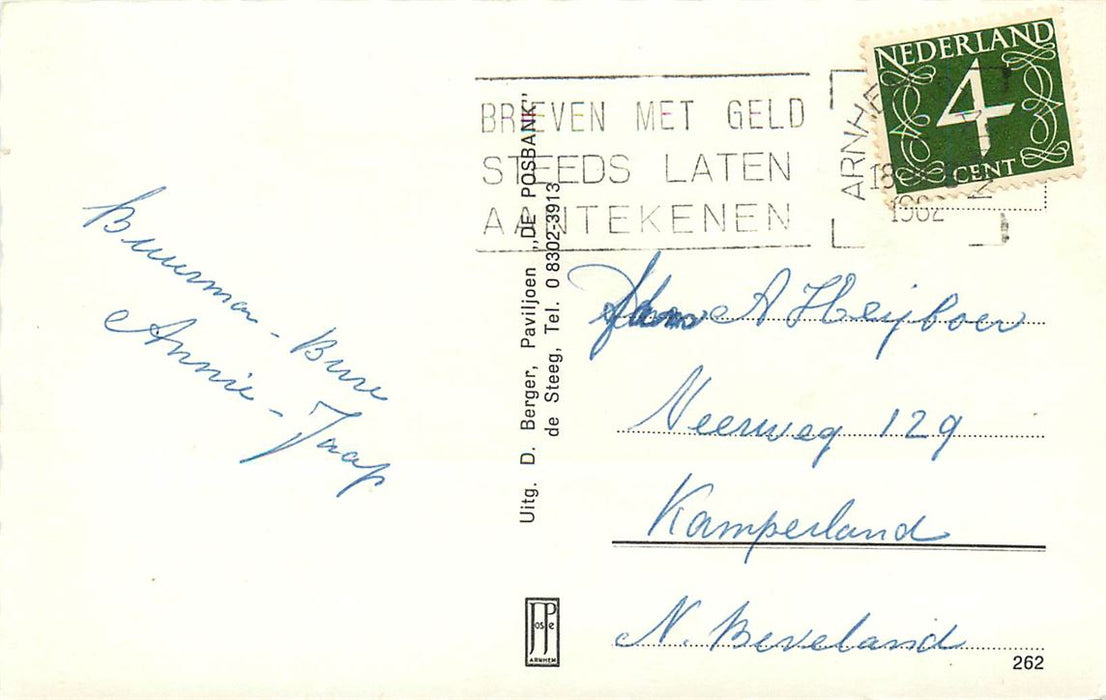 Buurman - Bure
Annie - Jaap
Uitg. D. Berger, Paviljoen „DE POSBANK"
de Steeg, Tel. 0 8302-3913
JosPé
ARNHEM
BRIEVEN MET GELD
STEEDS LATEN
AANTEKENEN
ARNHEM
18
1962
NEDERLAND
4
CENT
A Heijboer
Veerweg 129
Kamperland
N. Beveland
262